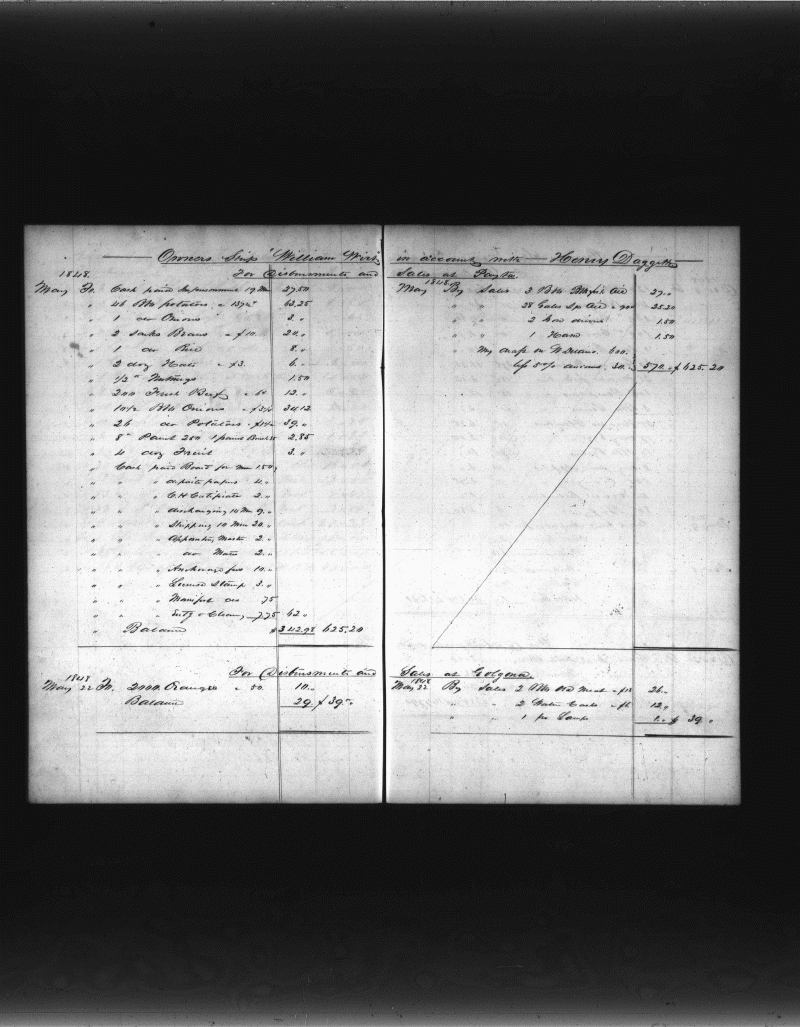 Owners Ship William Wirt in account with Henry Daggett
1848. For Disbursements and
May To. Cash paid 19 Men 27.50
" 46 Bbls potatoes " 1 37½ 63.25
" 1 do Onions 2 "
" 2 sacks Beans " $10. 20 "
" 1 do Rice 8 "
" 2 doz Hats " $3. 6 "
" ½ " Nutmegs 1.50
" 200 Fresh Beef " 6¢ 12 "
" 10½ Bbls Onions " $3¼ 34.12
" 26 do Potatoes " $1½ 39 "
" 8 " Paint 2.85
" 4 doz Fruit 3 "
" Cash paid Board for Men 1.50
" " " deposite papers 4 "
" " " C.H Certificate 2 "
" " " discharging 14 Men 9 "
" " " Shipping 10 Men 20 "
" " " Appointing Master 2 "
" " " do Mate 2 "
" " " Anchorage fees 10 "
" " " License Stamp 3 "
" " " Manifest do 75
" " " Entg & Clearg 7.75 62 "
" Balance $342.98 625.20
Sales at Payta.
1848
May By Sales 2 Bbls Blkfish Oil 27 "
" " 28 Galls Sp Oil " 90¢ 25.20
" " 2 1.50
" " 1 1.50
" My draft on W. 600.
less 5 o/o 30 " 570 " $625.20
1848 For Disbursements and
May 22 To. 2000 Oranges " 50. 10 "
Balance 29 $39 "
Sales at Tologona.
1848
May 22 By Sales 2 Bbls Meat " $13 26 "
" " 2 Water Casks " $6 12 "
" " 1 pr Lamps 1 " $39 "